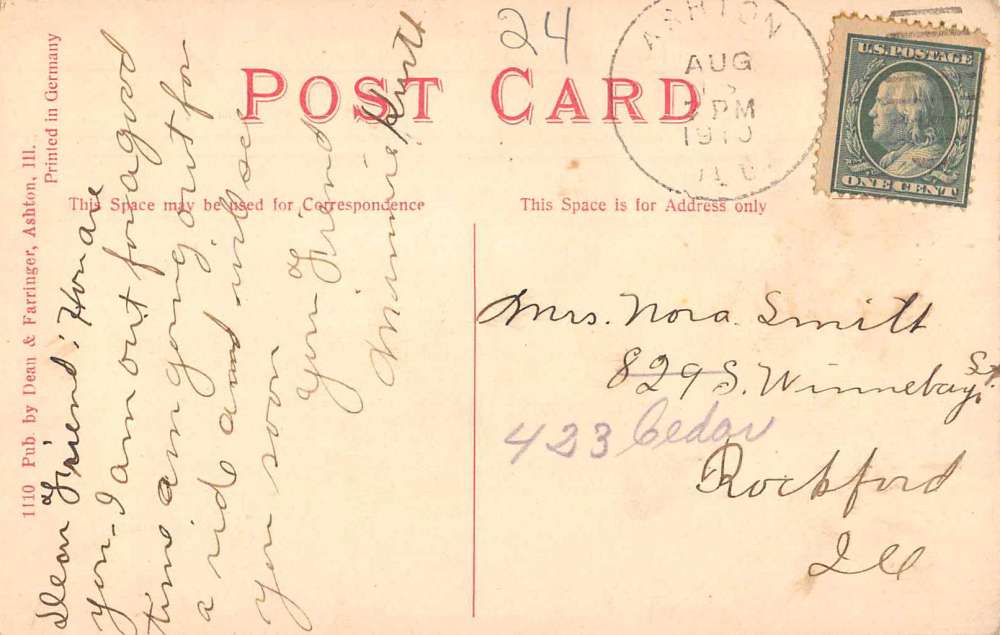 24
POST CARD
ASHTON
AUG
PM
1910
U.S. POSTAGE
ONE CENT
This Space may be used for Correspondence
This Space is for Address only
1110 Pub. by Dean & Farringer, Ashton, Ill.
Printed in Germany
Dear Friend: How are
you. I am out for a good
time am going out for
a ride and will see
you soon
Your Friend
Minnie
Mrs. Nora. Smith
829 S. Winnebago St.
423 Cedar
Rockford
Ill